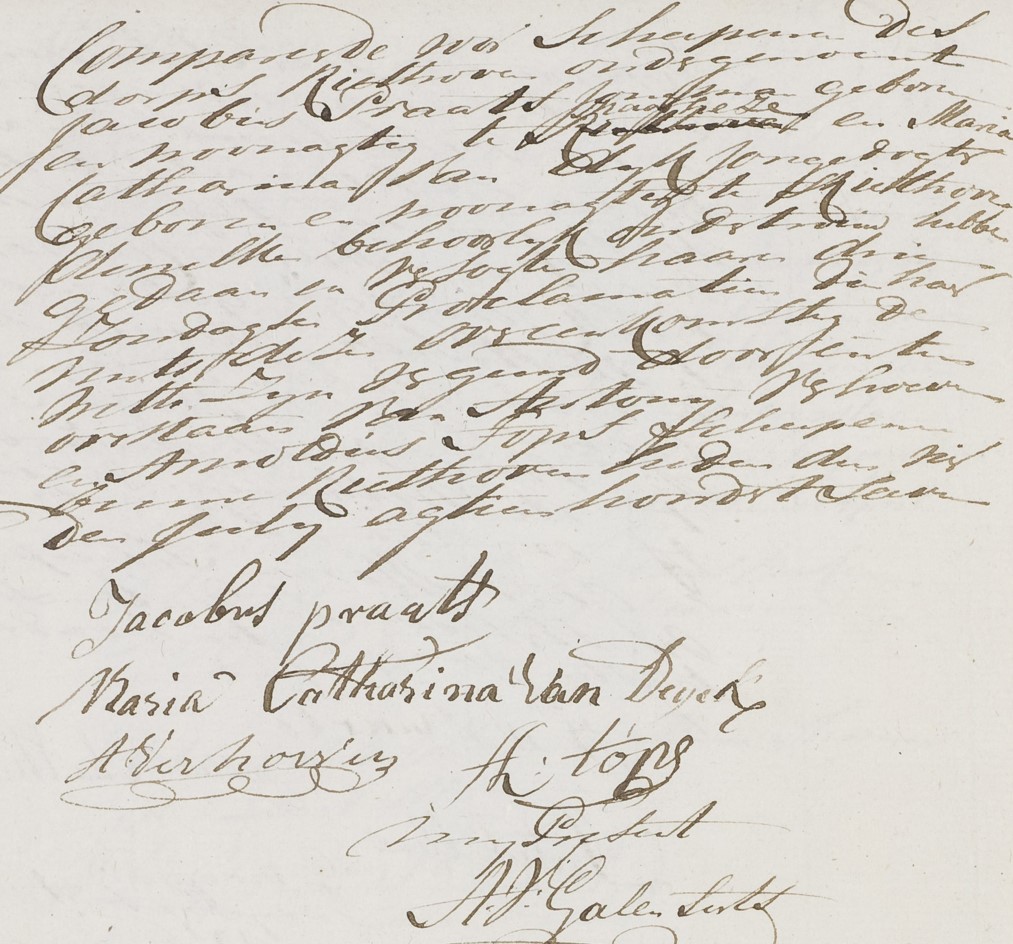 Compareerde voor Schepenen des
dorps Riethoven ondergenoemt
Jacobus Praats Jongman geboren
en woonagtig te Riethoven en Maria
Catharina Van Dyk Jongedogter
geboren en woonagtig te Riethoven
dewelke behoorlyk ondertrouw hebbe
gedaan en versogte haare drie
Zondagse Proclamatien die haar
mits deze overeenkomstig de
wette Zyn vergund door
overstaan van Antony Verhoeven
en Arnoldus Tops Schepenen
binnen Riethoven heden den
den July agtien hondert Seven
Jacobus praats
Maria Catharina Van Deyck
A Verhoeven
A: tops
my Present
A.V. Galen Secrts